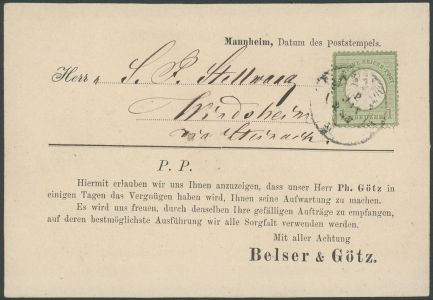 Mannheim, Datum des Poststempels.
Herrn S. F. Stellwaag
Windsheim
via Steinach
P. P.
Hiermit erlauben wir uns Ihnen anzuzeigen, dass unser Herr Ph. Götz in
einigen Tagen das Vergnügen haben wird, Ihnen seine Aufwartung zu machen.
Es wird uns freuen, durch denselben Ihre gefälligen Aufträge zu empfangen,
auf deren bestmöglichste Ausführung wir alle Sorgfalt verwenden werden.
Mit aller Achtung
Belser & Götz.